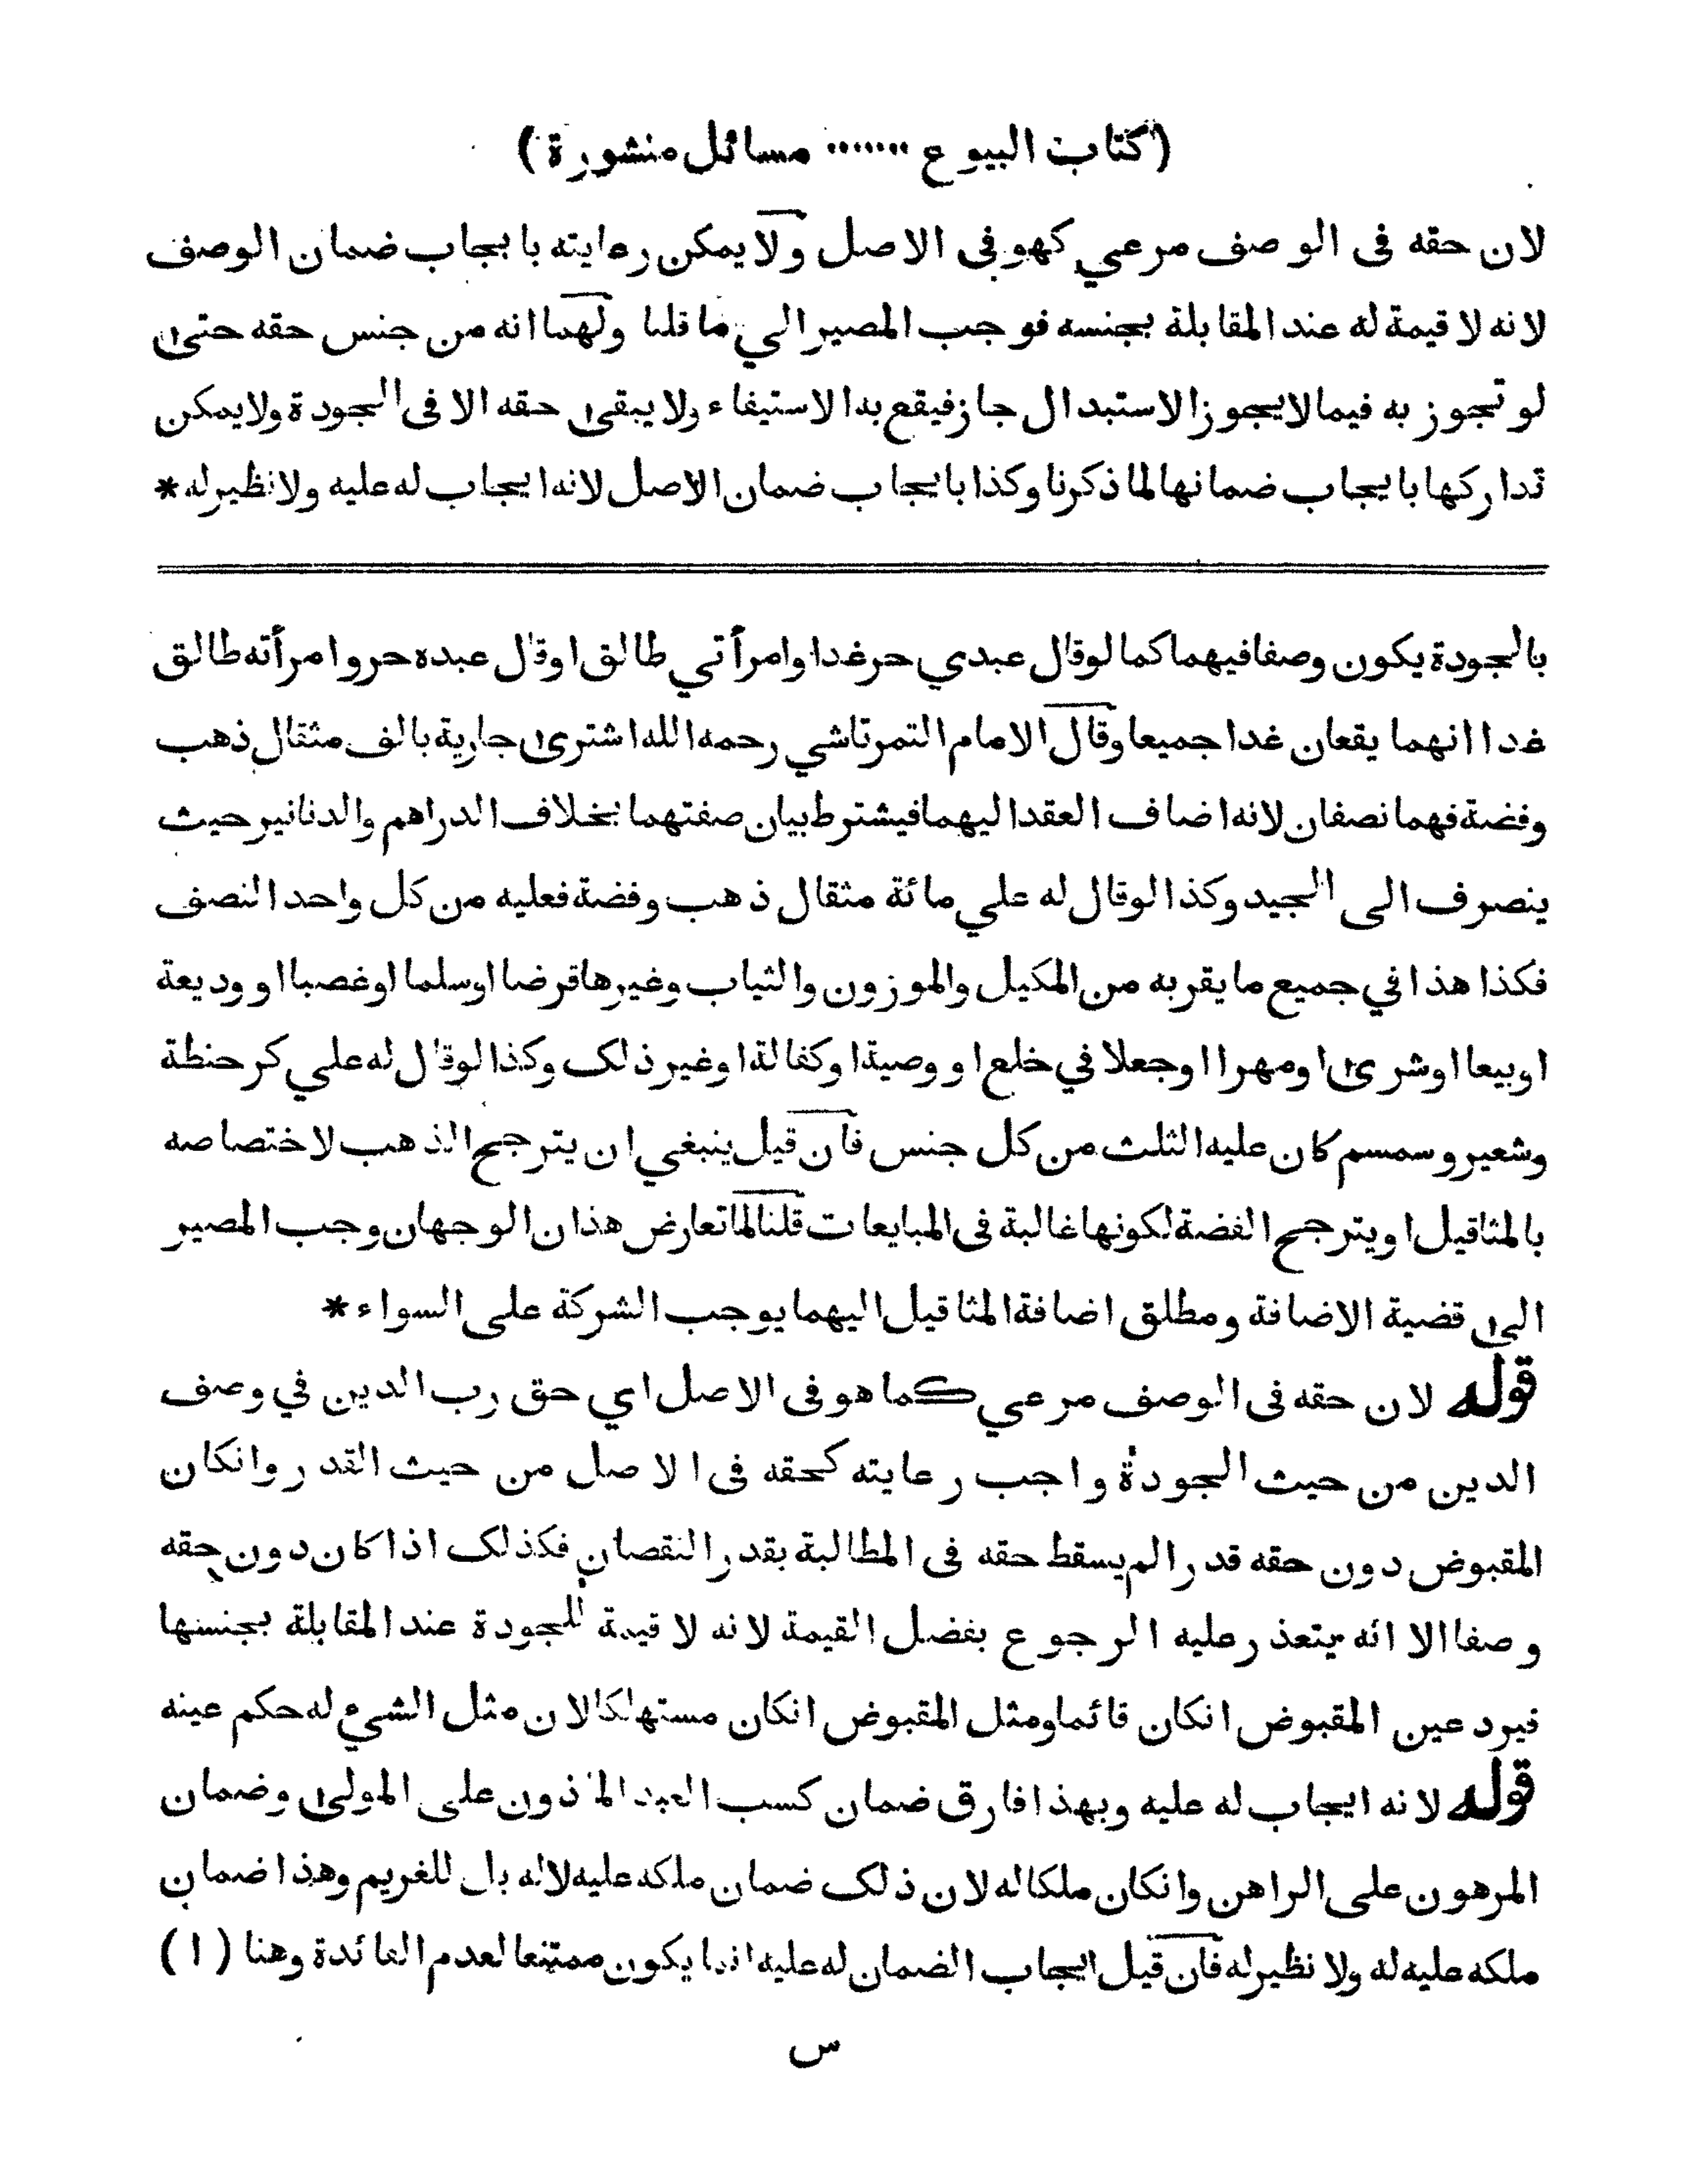 (كتاب البيوع ······· مسائل منشورة)
لان حقه فى الوصف مرعي كهو فى الاصل ولا يمكن رعايته بايجاب ضمان الوصف
لانه لا قيمة له عند المقابلة بجنسه فوجب المصير الي ما قلنا ولهما انه من جنس حقه حتى
لو تجوز به فيما لا يجوز الاستبدال جاز فيقع به الاستيفاء ولا يبقى حقه الا فى الجودة ولا يمكن
تداركها بايجاب ضمانها لما ذكرنا وكذا بايجاب ضمان الاصل لانه ايجاب له عليه ولا نظير له *
بالجودة يكون وصفا فيهما كما لو قال عبدي حر غدا وامرأتي طالق او قال عبده حر وامرأته طالق
غدا انهما يقعان غدا جميعا وقال الامام التمرتاشي رحمه الله اشترى جارية بالف مثقال ذهب
وفضة فهما نصفان لانه اضاف العقد اليهما فيشترط بيان صفتهما بخلاف الدراهم والدنانير حيث
ينصرف الى الجيد وكذا لو قال له علي مائة مثقال ذهب وفضة فعليه من كل واحد النصف
فكذا هذا في جميع ما يقر به من المكيل والموزون والثياب وغيرها قرضا او سلما او غصبا او وديعة
او بيعا او شرى او مهرا او جعلا في خلع او وصية او كفالة او غير ذلك وكذا لو قال له علي كر حنطة
وشعير وسمسم كان عليه الثلث من كل جنس فان قيل ينبغي ان يترجح الذهب لاختصاصه
بالمثاقيل او يترجح الفضة لكونها غالبة فى المبايعات قلنا لما تعارض هذان الوجهان وجب المصير
الى قضية الاضافة ومطلق اضافة المثاقيل اليهما يوجب الشركة على السواء *
قوله لان حقه فى الوصف مرعي كما هو فى الاصل اي حق رب الدين في وصف
الدين من حيث الجودة واجب رعايته كحقه فى الاصل من حيث القدر وانكان
المقبوض دون حقه قدرا لم يسقط حقه فى المطالبة بقدر النقصان فكذلك اذا كان دون حقه
وصفا الا انه يتعذر عليه الرجوع بفضل القيمة لانه لا قيمة للجودة عند المقابلة بجنسها
فيرد عين المقبوض انكان قائما ومثل المقبوض انكان مستهلكا لان مثل الشيء له حكم عينه
قوله لانه ايجاب له عليه وبهذا فارق ضمان كسب العبد الماذون على المولى وضمان
المرهون على الراهن وانكان ملكا له لان ذلك ضمان ملكه عليه لا له بل للغريم وهذا ضمان
ملكه عليه له ولا نظير له فان قيل ايجاب الضمان له عليه انما يكون ممتنعا لعدم الفائدة وهنا (١)
س